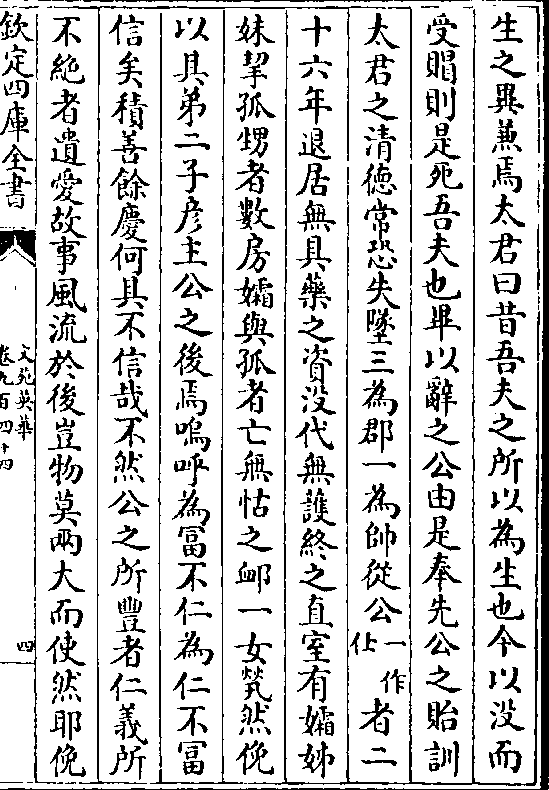 生之異兼焉太君曰昔吾夫之所以為生也今以没而
受賵則是死吾夫也畢以辭之公由是奉先公之貽訓
太君之清德常恐失墜三為郡一為帥從公一作佐者二
十六年退居無具藥之資没代無護終之直室有孀姊
妹挈孤甥者數房孀與孤者亡無怙之䘏一女煢然俛
以具弟二子彦主公之後焉嗚呼為富不仁為仁不冨
信矣積善餘慶何其不信哉不然公之所豐者仁義所
不絶者遺愛故事風流於後豈物莫兩大而使然耶俛
欽定四庫全書
文苑英華
卷九百四十四
四